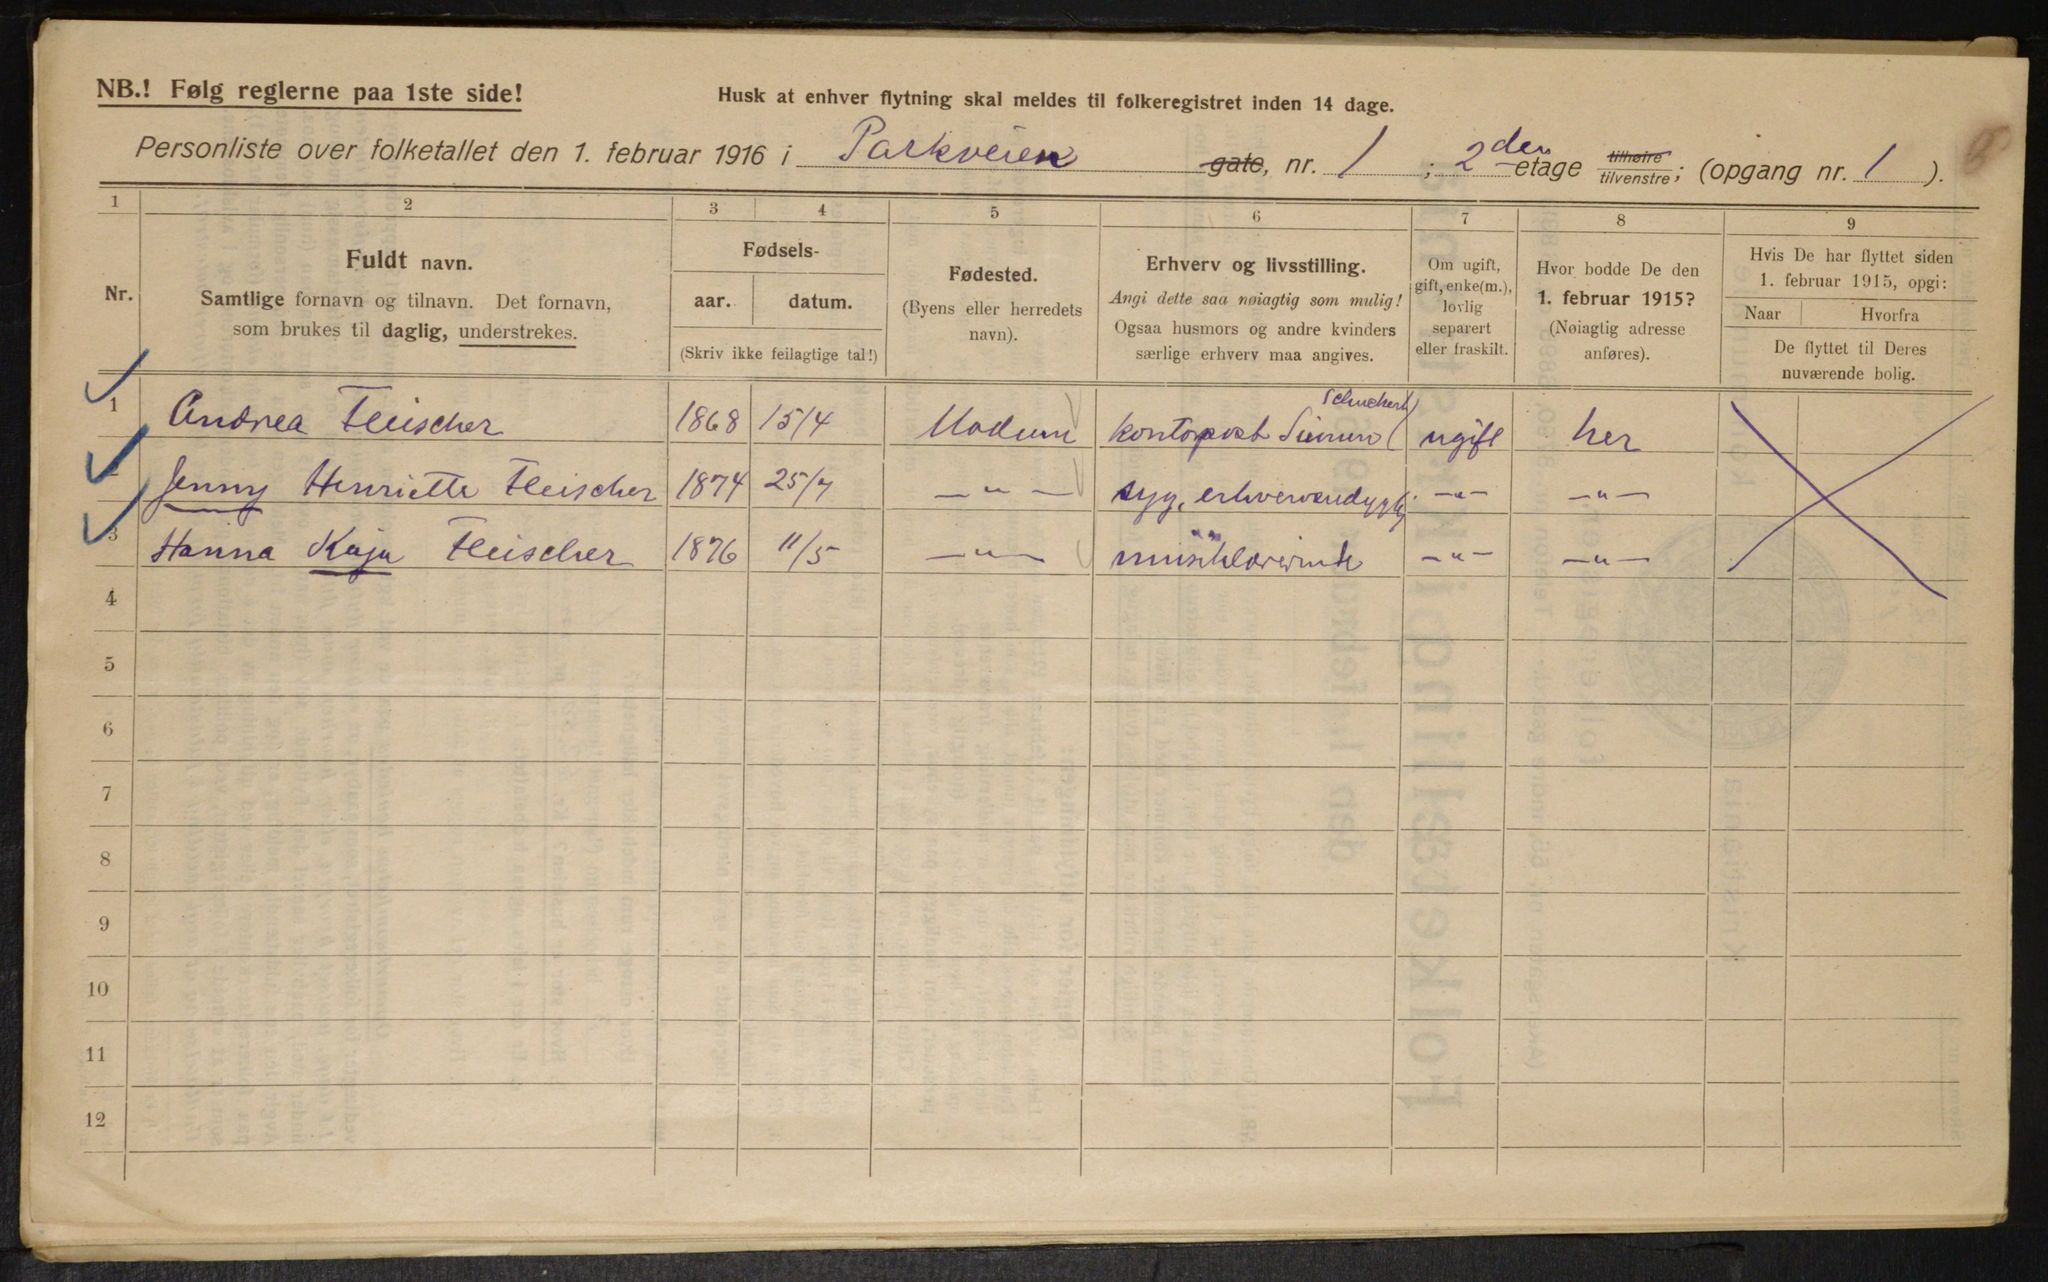 NB.! Følg reglerne paa 1ste side!
Husk at enhver flytning skal meldes til folkeregistret inden 14 dage.
Personliste over folketallet den 1. februar 1916 i Parkveien gate, nr. 1; 2den etage tilhøire tilvenstre; (opgang nr. 1).
1 2 3 4 5 6 7 8 9
Nr.
Fuldt navn.
Samtlige fornavn og tilnavn. Det fornavn,
som brukes til daglig, understrekes.
Fødsels-
aar. datum.
(Skriv ikke feilagtige tal!)
Fødested.
(Byens eller herredets
navn).
Erhverv og livsstilling.
Angi dette saa nøiagtig som mulig!
Ogsaa husmors og andre kvinders
særlige erhverv maa angives.
Om ugift,
gift, enke(m.),
lovlig
separert
eller fraskilt.
Hvor bodde De den
1. februar 1915?
(Nøiagtig adresse
anføres).
Hvis De har flyttet siden
1. februar 1915, opgi:
Naar Hvorfra
De flyttet til Deres
nuværende bolig.
1 Andrea Fleischer 1868 15/4 Modum kontorpost Schuckert ugift her
2 Jenny Henriette Fleischer 1874 25/7 —„— syg, —„— —„—
3 Hanna Kaja Fleischer 1876 11/5 —„— musiklærerinde —„— —„—
4
5
6
7
8
9
10
11
12